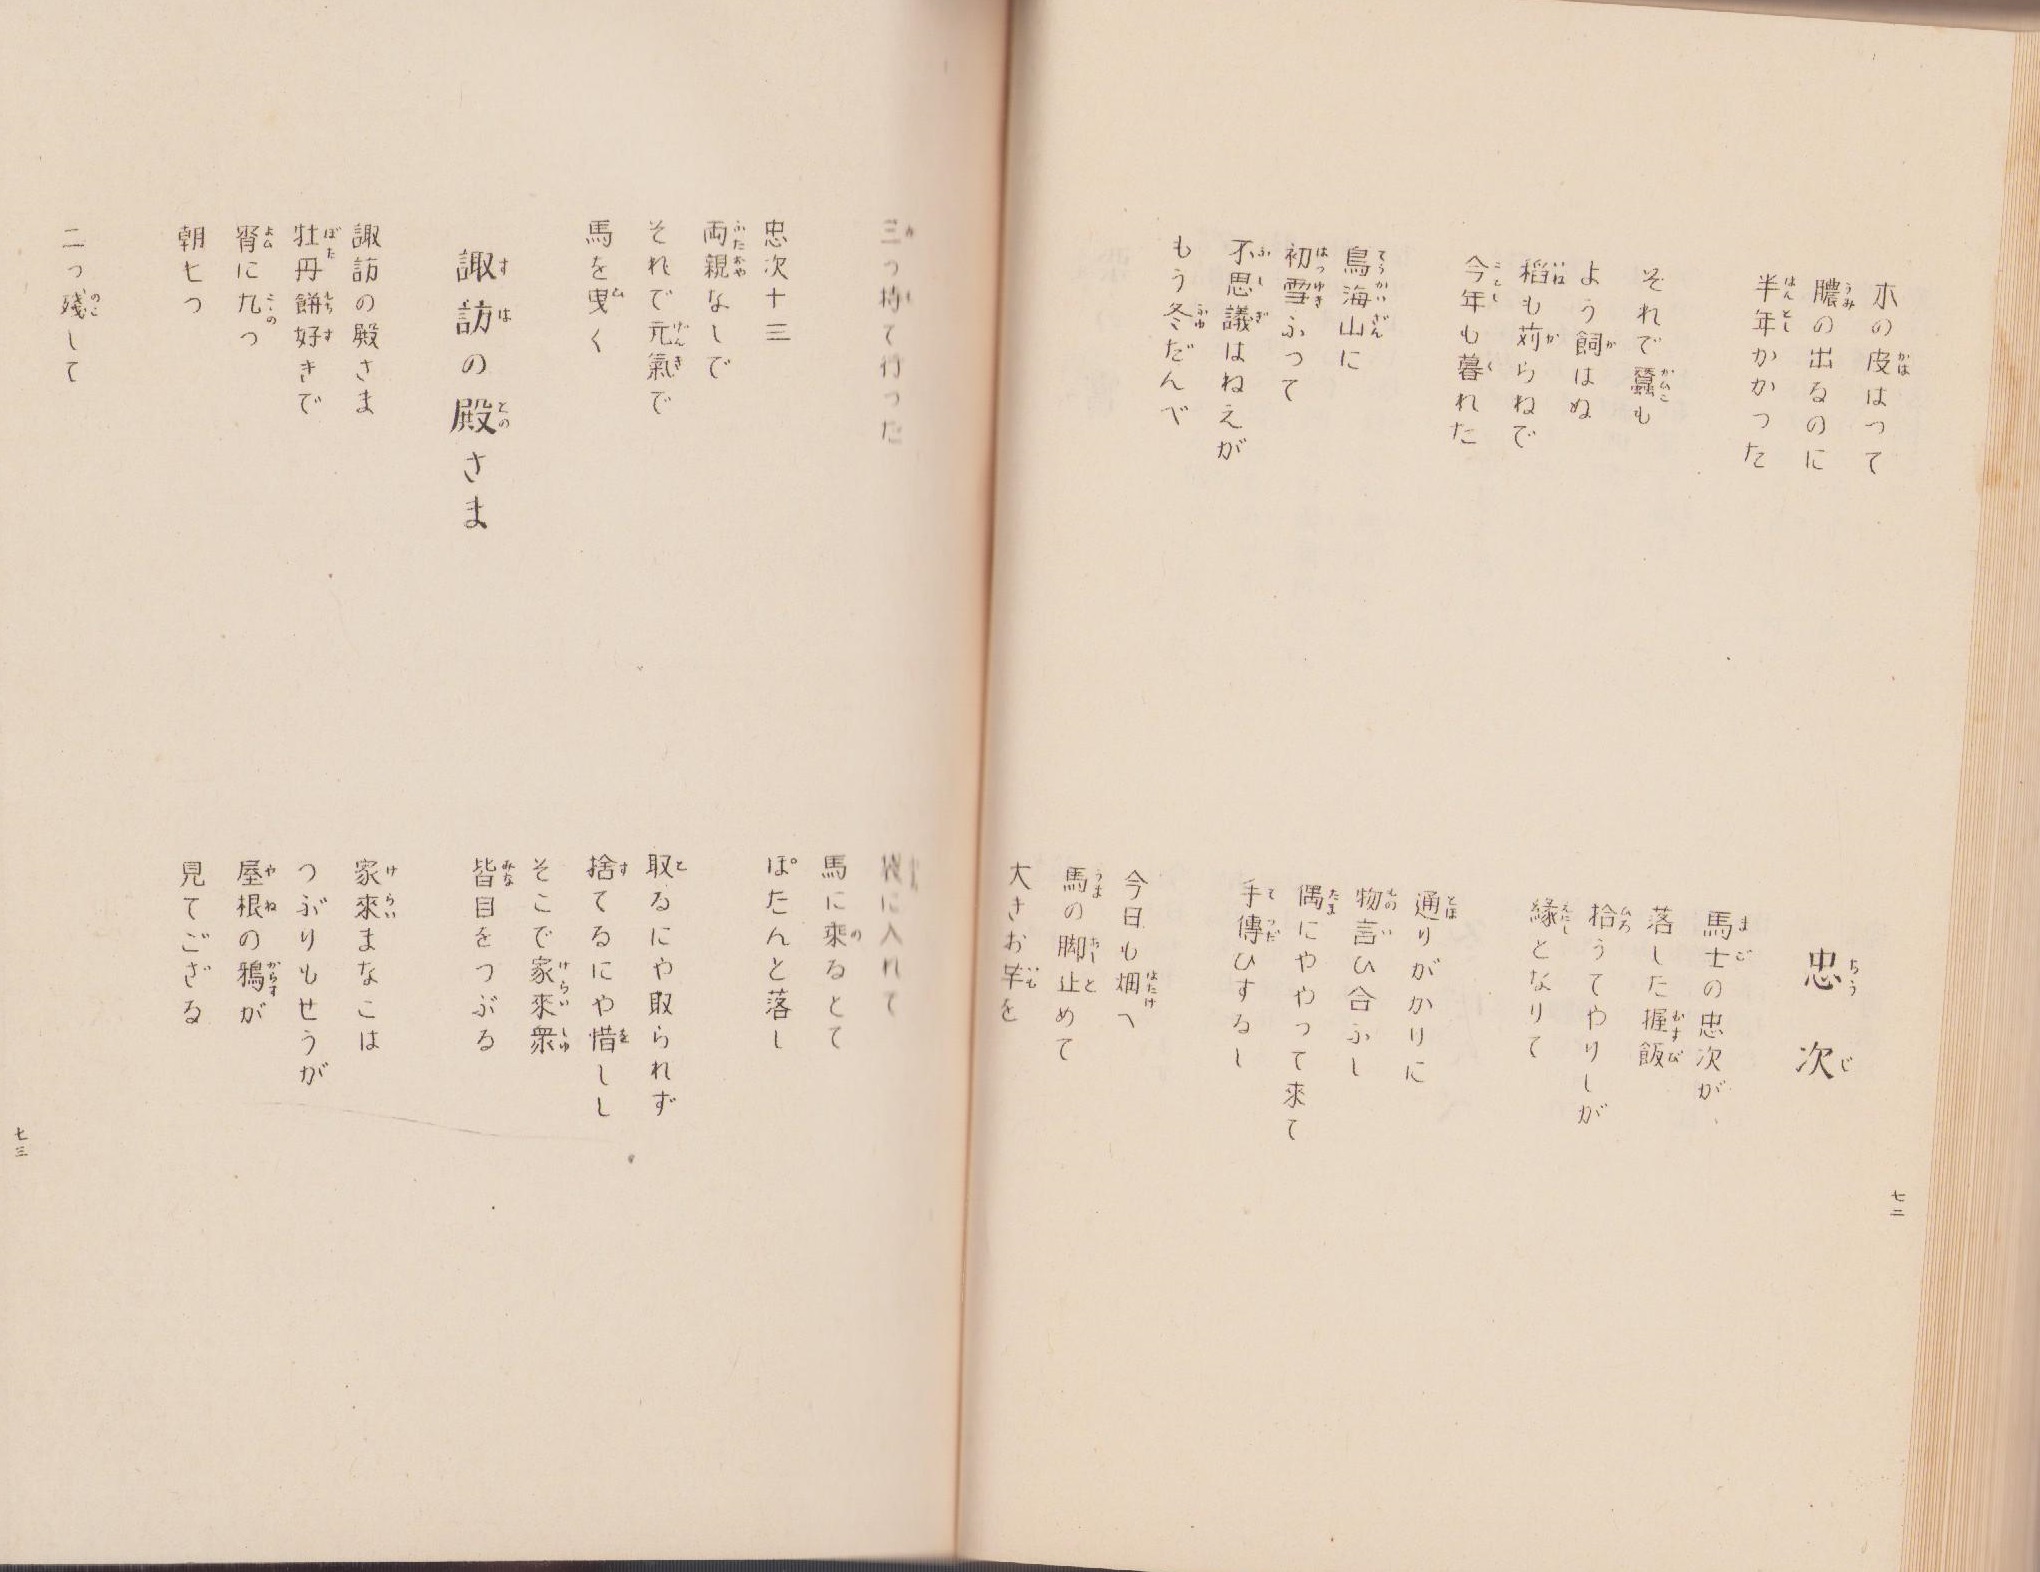 木の皮はつて
膿の出るのに
半年かかつた
それで蠶も
よう飼はぬ
稻も苅らねで
今年も暮れた
鳥海山に
初雪ふつて
不思議はねえが
もう冬だんべ
忠次
馬士の忠次が、
落した握飯
拾うてやりしが
縁となりて
通りがかりに
物言ひ合ふし
偶にややつて来て
手傳ひするし
今日も畑へ
馬の脚止めて
大きお芋を
七二
三つ持て行つた
忠次十三
両親なしで
それで元氣で
馬を曳く
諏訪の殿さま
諏訪の殿さま
牡丹餅好きで
宵に九つ
朝七つ
二つ殘して
袋に入れて
馬に乘るとて
ぽたんと落し
取るにや取られず
捨てるにや惜しし
そこで家來衆
皆目をつぶる
家來まなこは
つぶりもせうが
屋根の鴉が
見てござる
七三